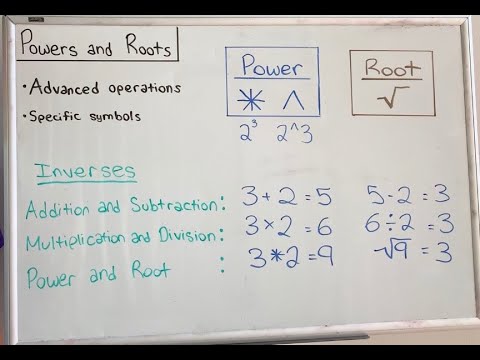 Powers and Roots
• Advanced operations
• Specific symbols
Power
* ^
2³ 2^3
Root
√
Inverses
Addition and Subtraction: 3+2=5 5-2=3
Multiplication and Division: 3×2=6 6÷2=3
Power and Root : 3*2=9 √9=3